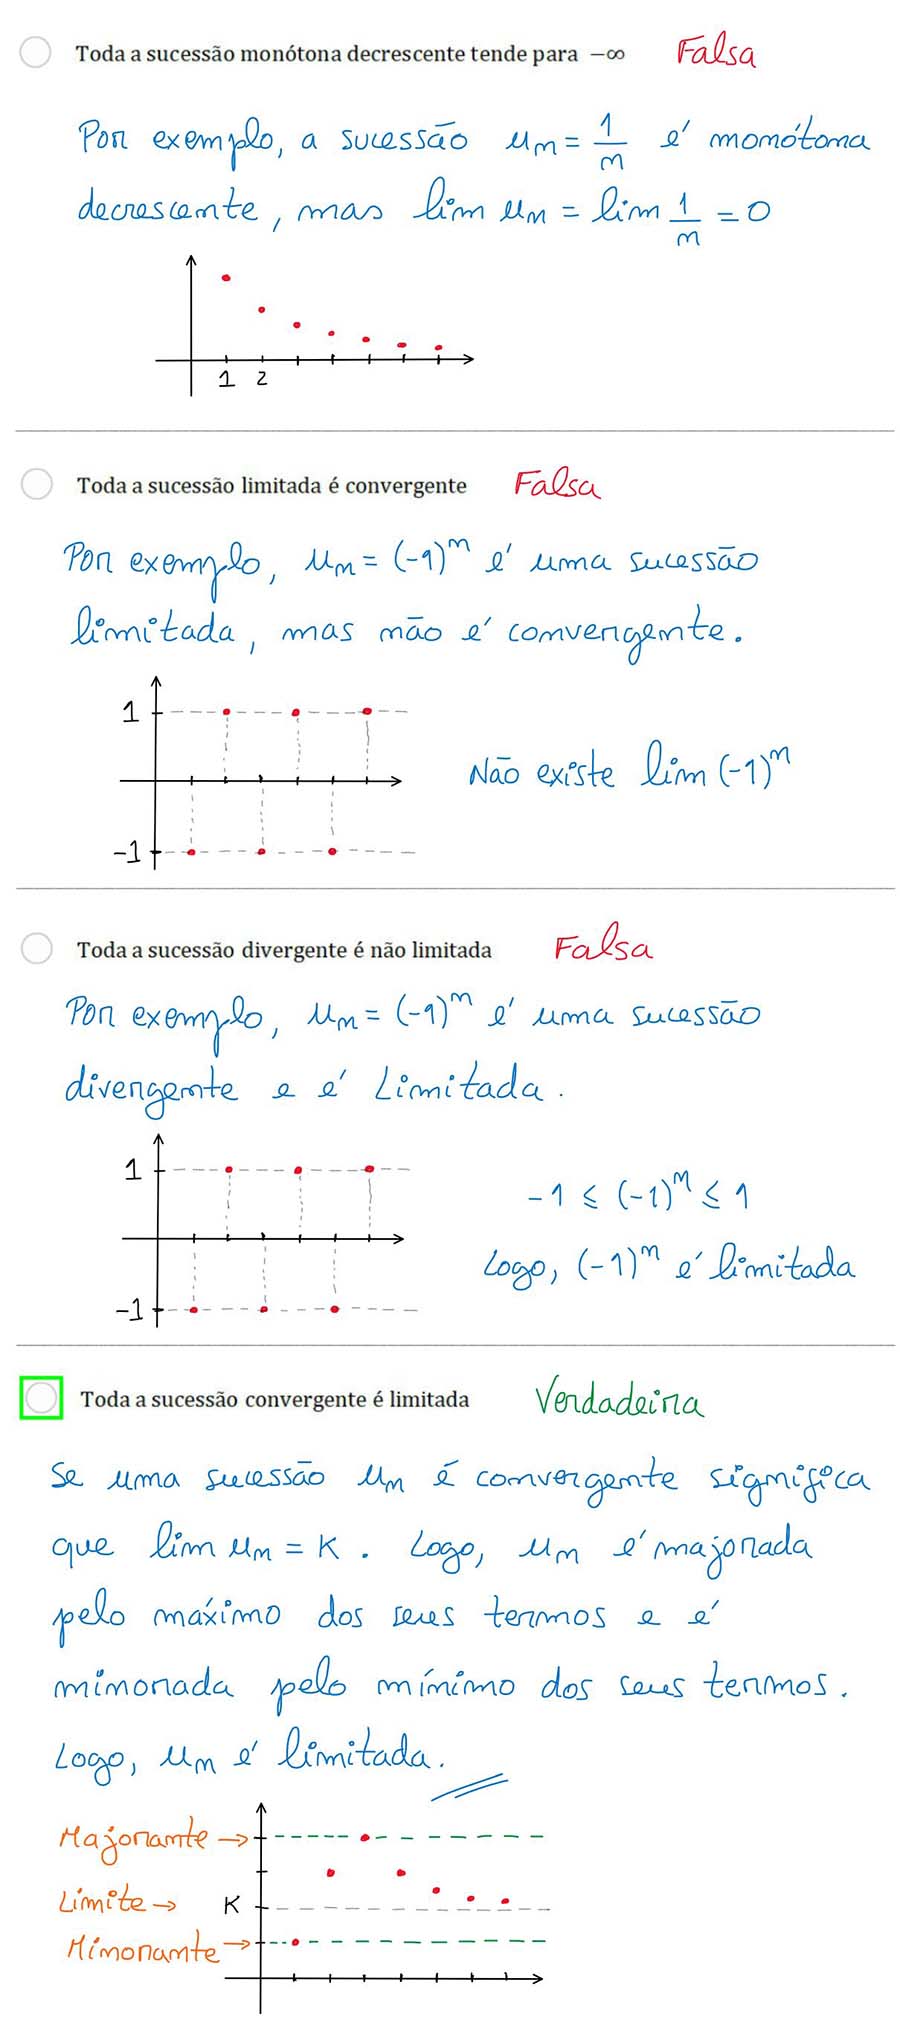 Toda a sucessão monótona decrescente tende para −∞ Falsa
Por exemplo, a sucessão un = 1/n é monótona
decrescente, mas lim un = lim 1/n = 0
1 2
Toda a sucessão limitada é convergente Falsa
Por exemplo, un = (-1)^n é uma sucessão
limitada, mas não é convergente.
1
Não existe lim (-1)^n
-1
Toda a sucessão divergente é não limitada Falsa
Por exemplo, un = (-1)^n é uma sucessão
divergente e é Limitada.
1
-1 ≤ (-1)^n ≤ 1
Logo, (-1)^n é limitada
-1
Toda a sucessão convergente é limitada Verdadeira
Se uma sucessão un é convergente significa
que lim un = K. Logo, un é majorada
pelo máximo dos seus termos e é
minorada pelo mínimo dos seus termos.
Logo, un é limitada.
Majorante →
Limite → K
Minorante →